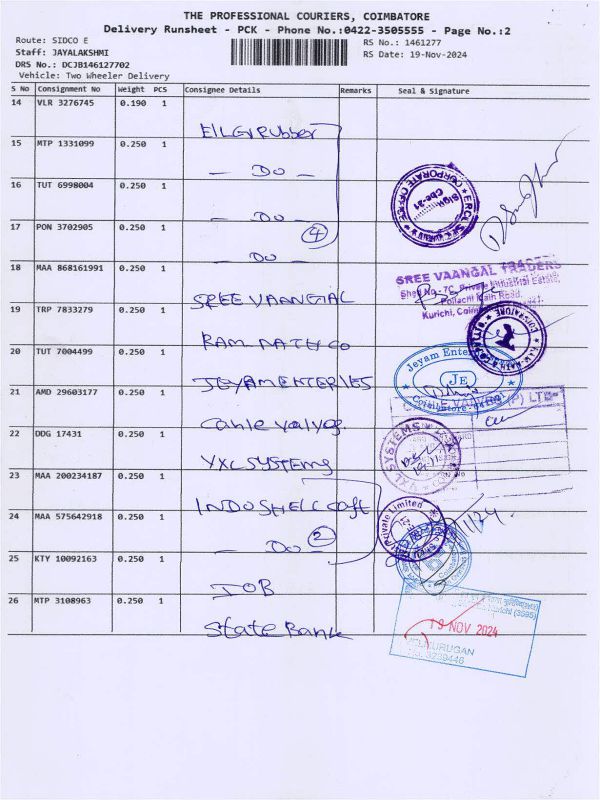 THE PROFESSIONAL COURIERS, COIMBATORE
Delivery Runsheet - PCK - Phone No.:0422-3505555 - Page No.:2
Route: SIDCO E
RS No.: 1461277
Staff: JAYALAKSHMI
RS Date: 19-Nov-2024
DRS No.: DCJB146127702
Vehicle: Two Wheeler Delivery
S No Consignment No Weight PCS Consignee Details Remarks Seal & Signature
14 VLR 3276745 0.190 1
Ellgi Rubber
15 MTP 1331099 0.250 1
— Do —
16 TUT 6998004 0.250 1
— Do —
17 PON 3702905 0.250 1
4
— Do —
18 MAA 868161991 0.250 1
SREE VAANGAL
19 TRP 7833279 0.250 1
RAM NATH CO
20 TUT 7004499 0.250 1
JEYAM ENTERIES
21 AMD 29603177 0.250 1
Cable valves
22 DDG 17431 0.250 1
VXL SYSTEMS
23 MAA 200234187 0.250 1
INDOSHELL
24 MAA 575642918 0.250 1
— Do 2
25 KTY 10092163 0.250 1
IOB
26 MTP 3108963 0.250 1
State Bank
CORPORATE OFFICE
Cbe-21
SREE VAANGAL TRADERS
Shed No - 7C, Private Industrial Estate,
Pollachi Main Road,
Jeyam Enter
JE
Coimbatore
(P) LTD
VXL SYSTEMS
Private Limited
19 NOV 2024
VELMURUGAN